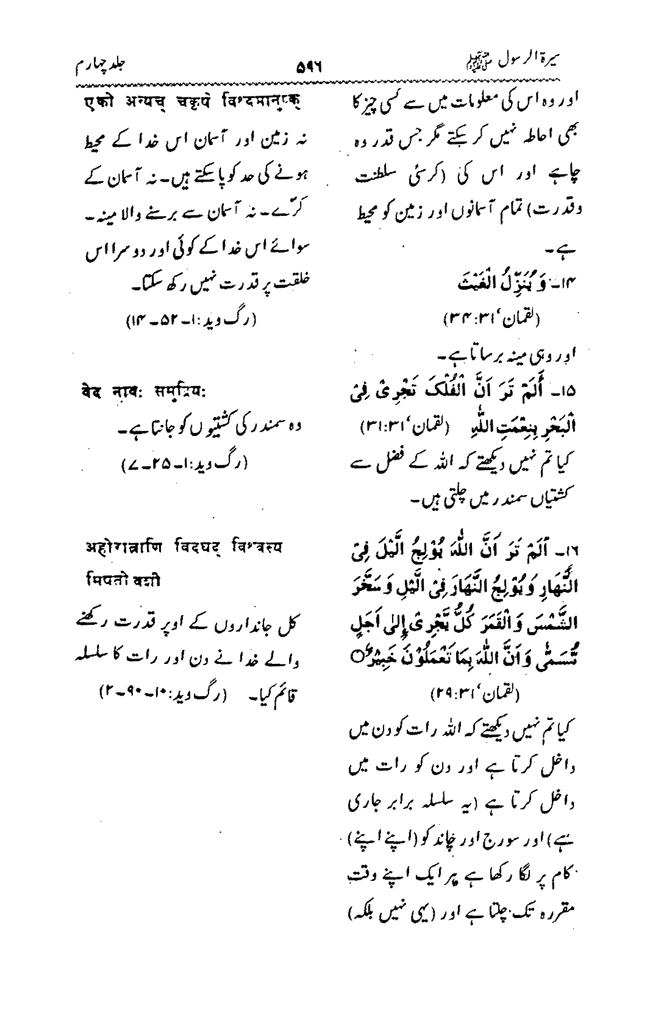 سیرۃ الرسول ﷺ
۵۹۶
جلد چہارم
اور وہ اس کی معلومات میں سے کسی چیز کا
بھی احاطہ نہیں کر سکتے مگر جس قدر وہ
چاہے اور اس کی (کرسئی سلطنت
وقدرت) تمام آسمانوں اور زمین کو محیط
ہے۔
۱۴۔ وَ يُنَزِّلُ الْغَيْثَ
(لقمان‘ ۳۱:۳۴)
اور وہی مینہ برساتا ہے۔
۱۵۔ أَلَمْ تَرَ اَنَّ الْفُلْكَ تَجْرِىْ فِى
الْبَحْرِ بِنِعْمَتِ اللّٰهِ (لقمان‘ ۳۱:۳۱)
کیا تم نہیں دیکھتے کہ اللہ کے فضل سے
کشتیاں سمندر میں چلتی ہیں۔
۱۶۔ اَلَمْ تَرَ اَنَّ اللّٰهَ يُوْلِجُ الَّيْلَ فِى
النَّهَارِ وَ يُوْلِجُ النَّهَارَ فِى الَّيْلِ وَ سَخَّرَ
الشَّمْسَ وَ الْقَمَرَ كُلٌّ يَّجْرِىْ اِلٰى اَجَلٍ
مُّسَمًّى وَ اَنَّ اللّٰهَ بِمَا تَعْمَلُوْنَ خَبِيْرٌ○
(لقمان‘ ۳۱:۲۹)
کیا تم نہیں دیکھتے کہ اللہ رات کو دن میں
داخل کرتا ہے اور دن کو رات میں
داخل کرتا ہے (یہ سلسلہ برابر جاری
ہے) اور سورج اور چاند کو (اپنے اپنے)
کام پر لگا رکھا ہے ہر ایک اپنے وقت
مقررہ تک چلتا ہے اور (یہی نہیں بلکہ)
एको अन्यच् चकृषे विश्वमानुष्क्
نہ زمین اور آسمان اس خدا کے محیط
ہونے کی حد کو پا سکتے ہیں۔ نہ آسمان کے
کرّے۔ نہ آسمان سے برسنے والا مینہ۔
سوائے اس خدا کے کوئی اور دوسرا اس
خلقت پر قدرت نہیں رکھ سکتا۔
(رگ وید: ۱۔۵۲۔۱۴)
वेद नावः समुद्रियः
وہ سمندر کی کشتیوں کو جانتا ہے۔
(رگ وید: ۱۔۲۵۔۷)
अहोरात्राणि विदघद् विश्वस्य
मिषतो वशी
کل جانداروں کے اوپر قدرت رکھنے
والے خدا نے دن اور رات کا سلسلہ
قائم کیا۔ (رگ وید: ۱۰۔۹۰۔۲)